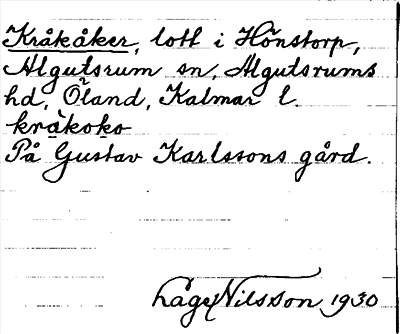 Kråkåker, lott i Hönstorp,
Algutsrum sn, Algutsrums
hd, Öland, Kalmar l.
På Gustav Karlssons gård.
Låge Nilsson 1930